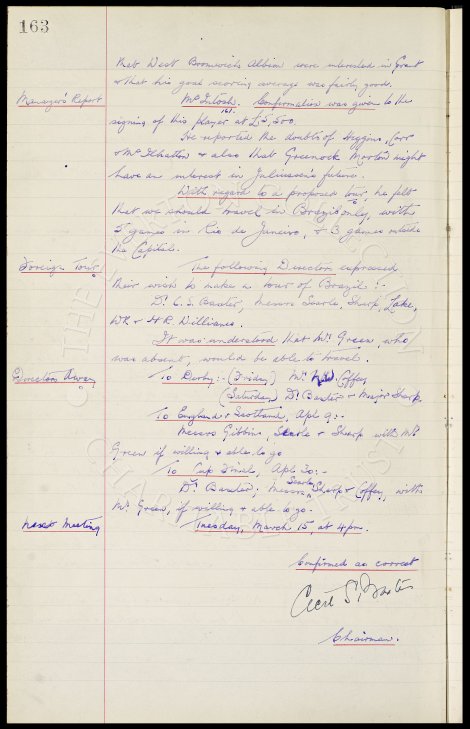 163
that West Bromwich Albion were interested in Grant
& that his goal scoring average was fairly good.
Manager's Report McIntosh. Confirmation was given to the
161.
signing of this player at £2,500.
He reported the doubts of Higgins, Carr
& McIlhatton & also that Greenock Morton might
have an interest in Juliussen's future.
With regard to a proposed tour, he felt
that we should travel in Brazil only, with
5 games in Rio de Janeiro, & 3 games outside
the Capital.
Foreign Tour. The following Directors expressed
their wish to make a tour of Brazil :-
Dr. C. S. Baxter, Messrs Searle, Sharp, Lake,
W.R. & H.R. Williams.
It was understood that Mr. Green, who
was absent, would be able to travel.
Directors Away To Derby:- (Friday) Mr. Coffey
(Saturday Dr. Baxter & Major Sharp.
To England v Scotland, Apl 9:-
Messrs Gibbins, Searle & Sharp with Mr
Green if willing & able to go
To Cup Final, Apl 30:-
Searle
Dr. Baxter, Messrs Sharp & Coffey, with
Mr Green, if willing & able to go.
Next Meeting Tuesday, March 15, at 4 pm.
Confirmed as correct
Cecil S. Baxter
Chairman.